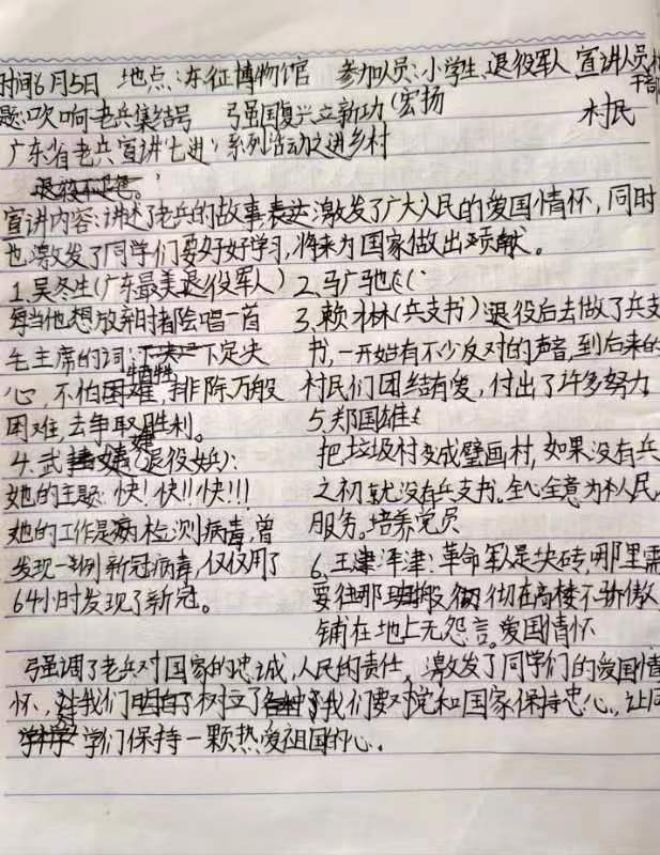 时间6月5日 地点:东征博物馆 参加人员:小学生、退役军人 宣讲人员
干部
题:吹响老兵集结号 强国复兴立新功(宏扬 村民
广东省老兵宣讲“七进”系列活动之进乡村
宣讲内容:讲述了老兵的故事,激发了广大人民的爱国情怀,同时
也激发了同学们要好好学习,将来为国家做出贡献。
1.吴冬生(广东最美退役军人) 2.马广驰
每当他想放弃时都会唱一首 3.赖林(兵支书)退役后去做了兵支
毛主席的词:下定决 书,一开始有不少反对的声音,到后来的
心,不怕牺牲,排除万般 村民们团结有爱,付出了许多努力
困难,去争取胜利。 5.郑国雄
4.武婧(退役女兵): 把垃圾村变成壁画村,如果没有兵
她的主题:快!快!!快!!! 之初就没有兵支书。全心全意为人民
她的工作是病检测病毒,曾 服务。培养党员
发现一例新冠病毒,仅仅用了 6.王津平津:革命军人是块砖,哪里需
64小时发现了新冠。 要往哪搬 砌在高楼不骄傲
铺在地上无怨言。爱国情怀
强调了老兵对国家的忠诚,人民的责任,激发了同学们的爱国情
怀,让我们明白了树立了我们要对党和国家保持忠心。让同
学们保持一颗热爱祖国的心。